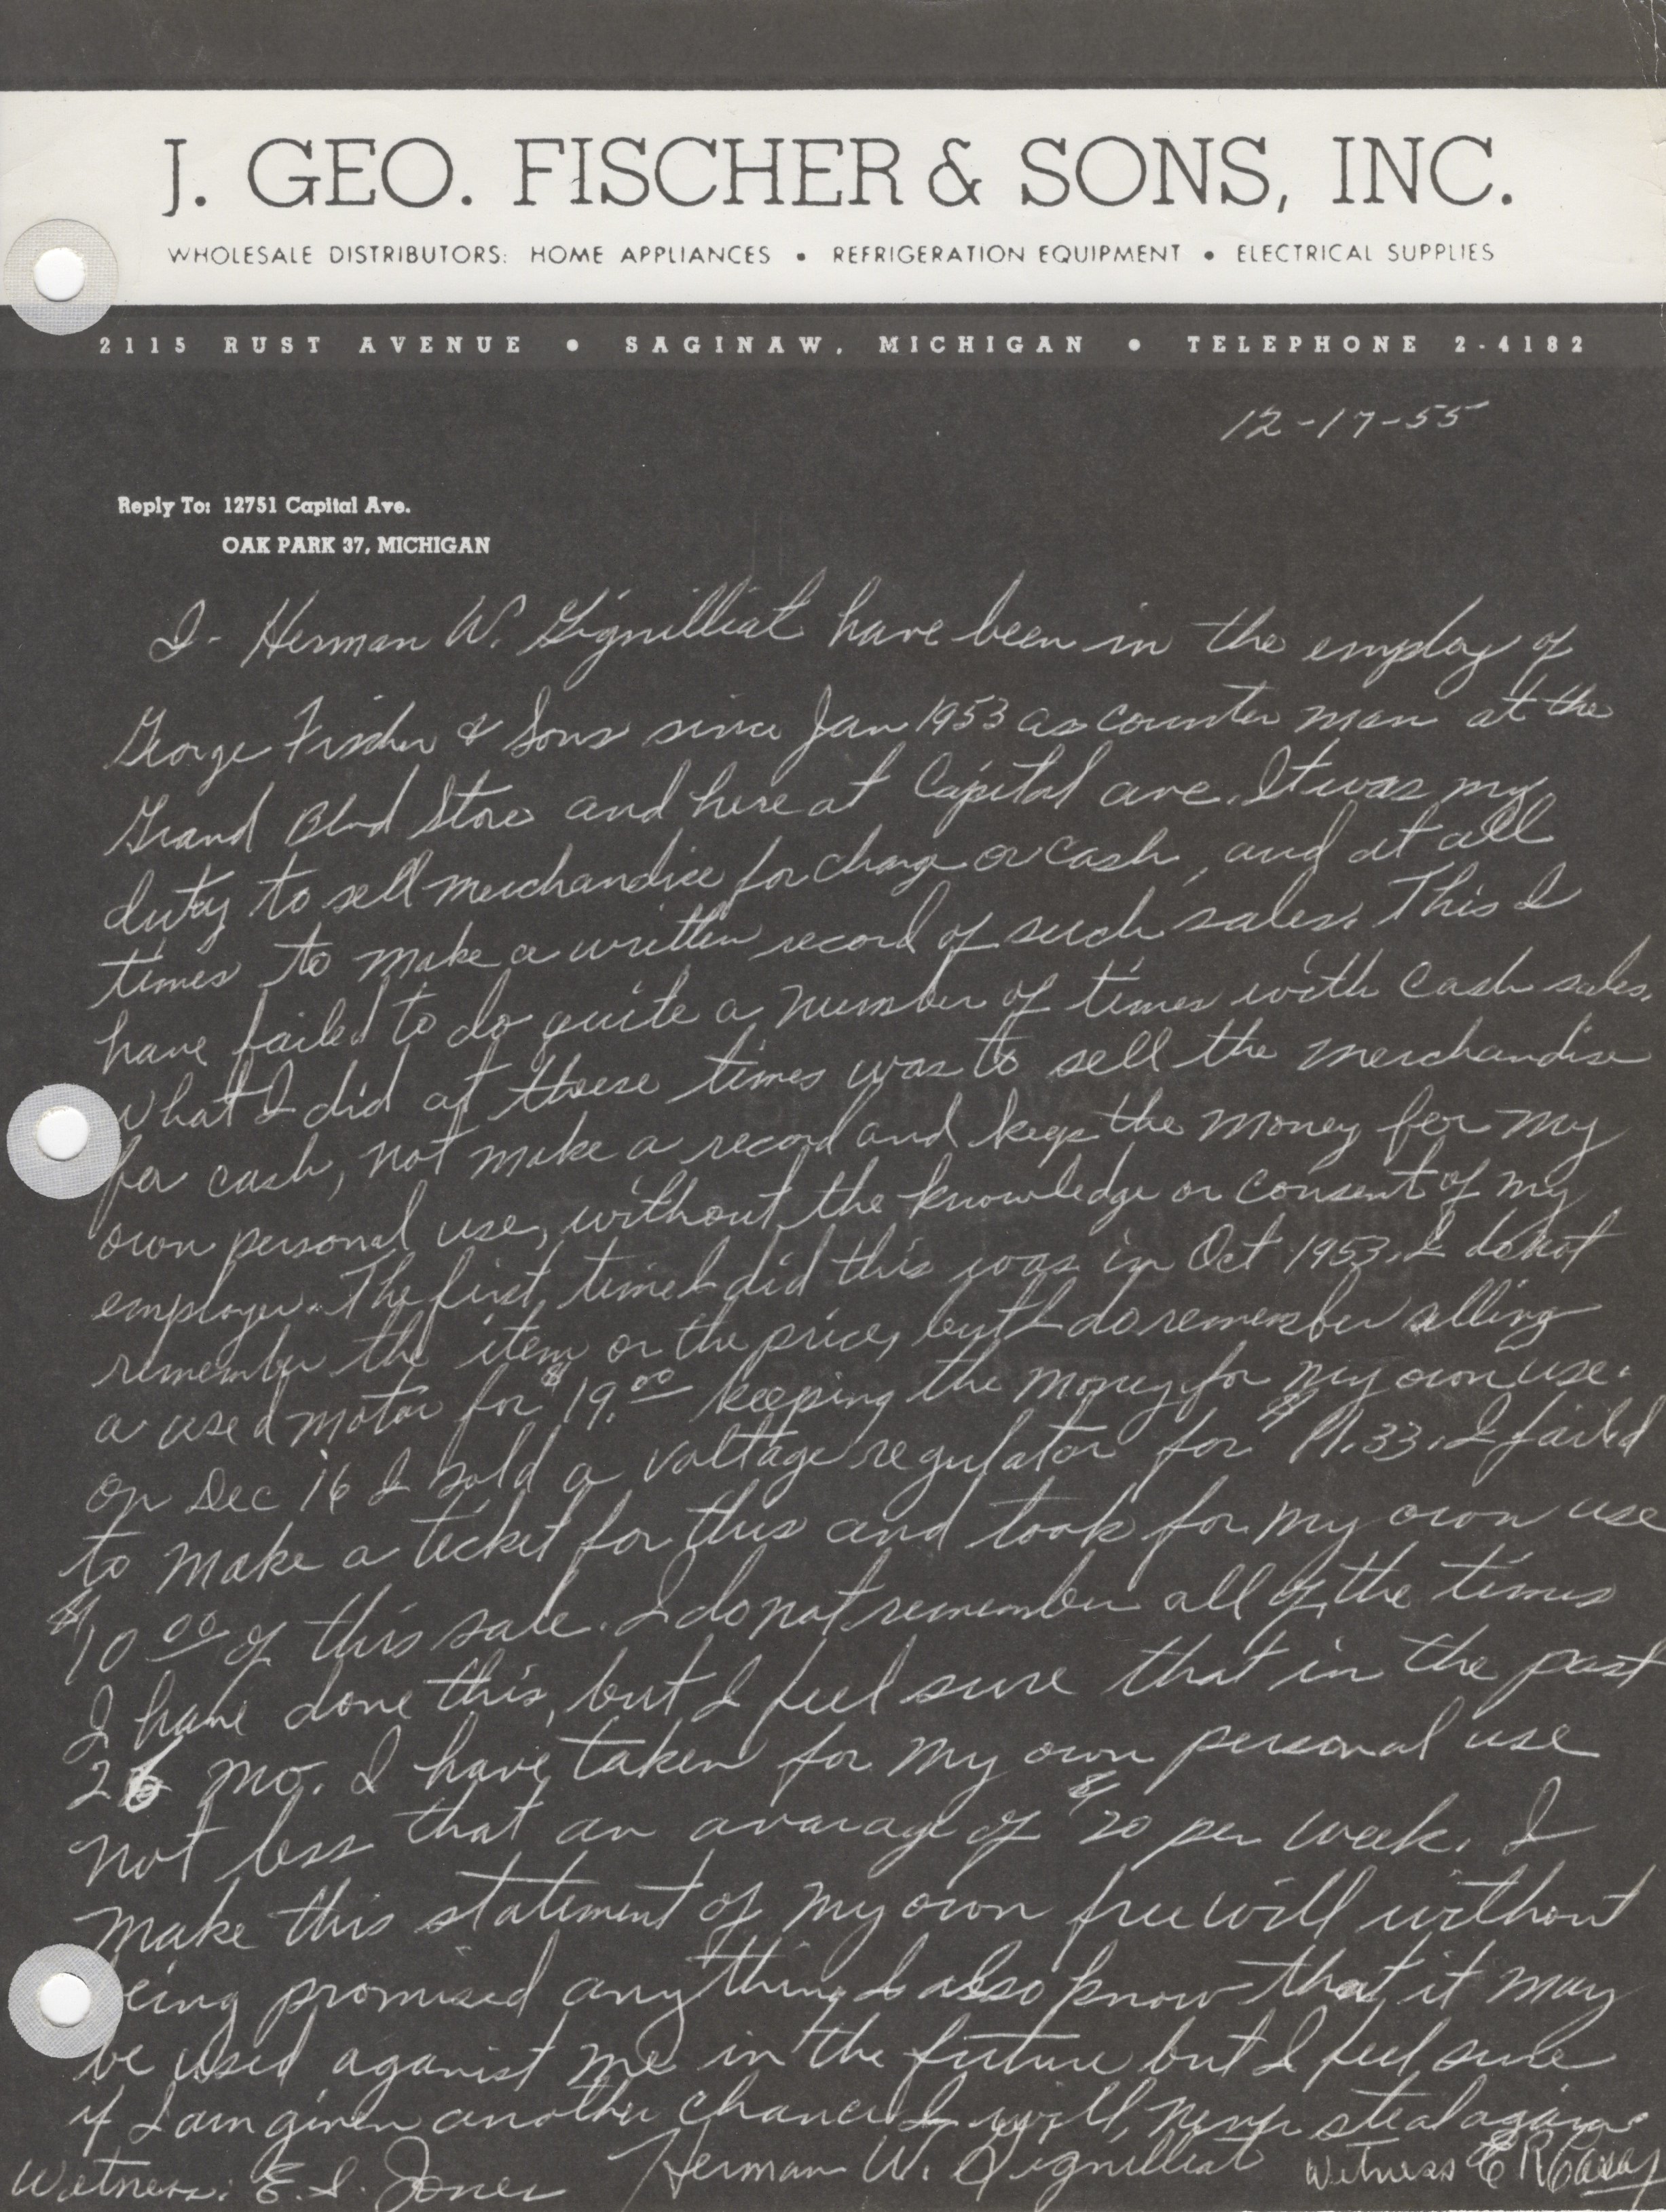 J. GEO. FISCHER & SONS, INC.
WHOLESALE DISTRIBUTORS: HOME APPLIANCES • REFRIGERATION EQUIPMENT • ELECTRICAL SUPPLIES
2115 RUST AVENUE • SAGINAW, MICHIGAN • TELEPHONE 2-4182
12-17-55
Reply To: 12751 Capital Ave.
OAK PARK 37, MICHIGAN
I- Herman W. Gignilliat have been in the employ of
George Fischer & Sons since Jan 1953 as counter man at the
Grand Blvd Store and here at Capital ave. It was my
duty to sell merchandice for charge or cash, and at all
times to make a written record of such sales. This I
have failed to do quite a number of times with cash sales.
What I did at these times was to sell the merchandise
for cash, not make a record and keep the money for my
own personal use, without the knowledge or consent of my
employer. The first time I did this was in Oct 1953. I do not
remember the item or the price, but I do remember selling
a used motor for $19.00 keeping the money for my own use.
On Dec 16 I sold a voltage regulator for $11.33. I failed
to make a ticket for this and took for my own use
$10.00 of this sale. I do not remember all of the times
I have done this, but I feel sure that in the past
26 mo. I have taken for my own personal use
not less that an avarage of $20 per week. I
make this statement of my own free will without
being promised anything I also know that it may
be used against me in the future but I feel sure
if I am given another chance I will never steal again.
Witness: E. S. Jones Herman W. Gignilliat Witness E R Casey